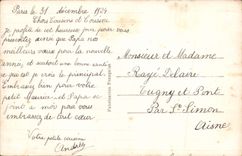 Paris le 31 décembre 1924
Chers Cousins et Cousine
Je profite de cet heureux jour pour vous
présenter ainsi que Papa nos
meilleurs vœux pour la nouvelle
année, et surtout une bonne santé
ce qui est je crois le principal.
Embrassez bien pour votre
petit Maurice et Papa se
joint à moi pour vous
embrasser de tout cœur
Votre petite cousine
Monsieur et Madame
Rayé Delaire
Tugny et Pont
Par St Simon
Aisne